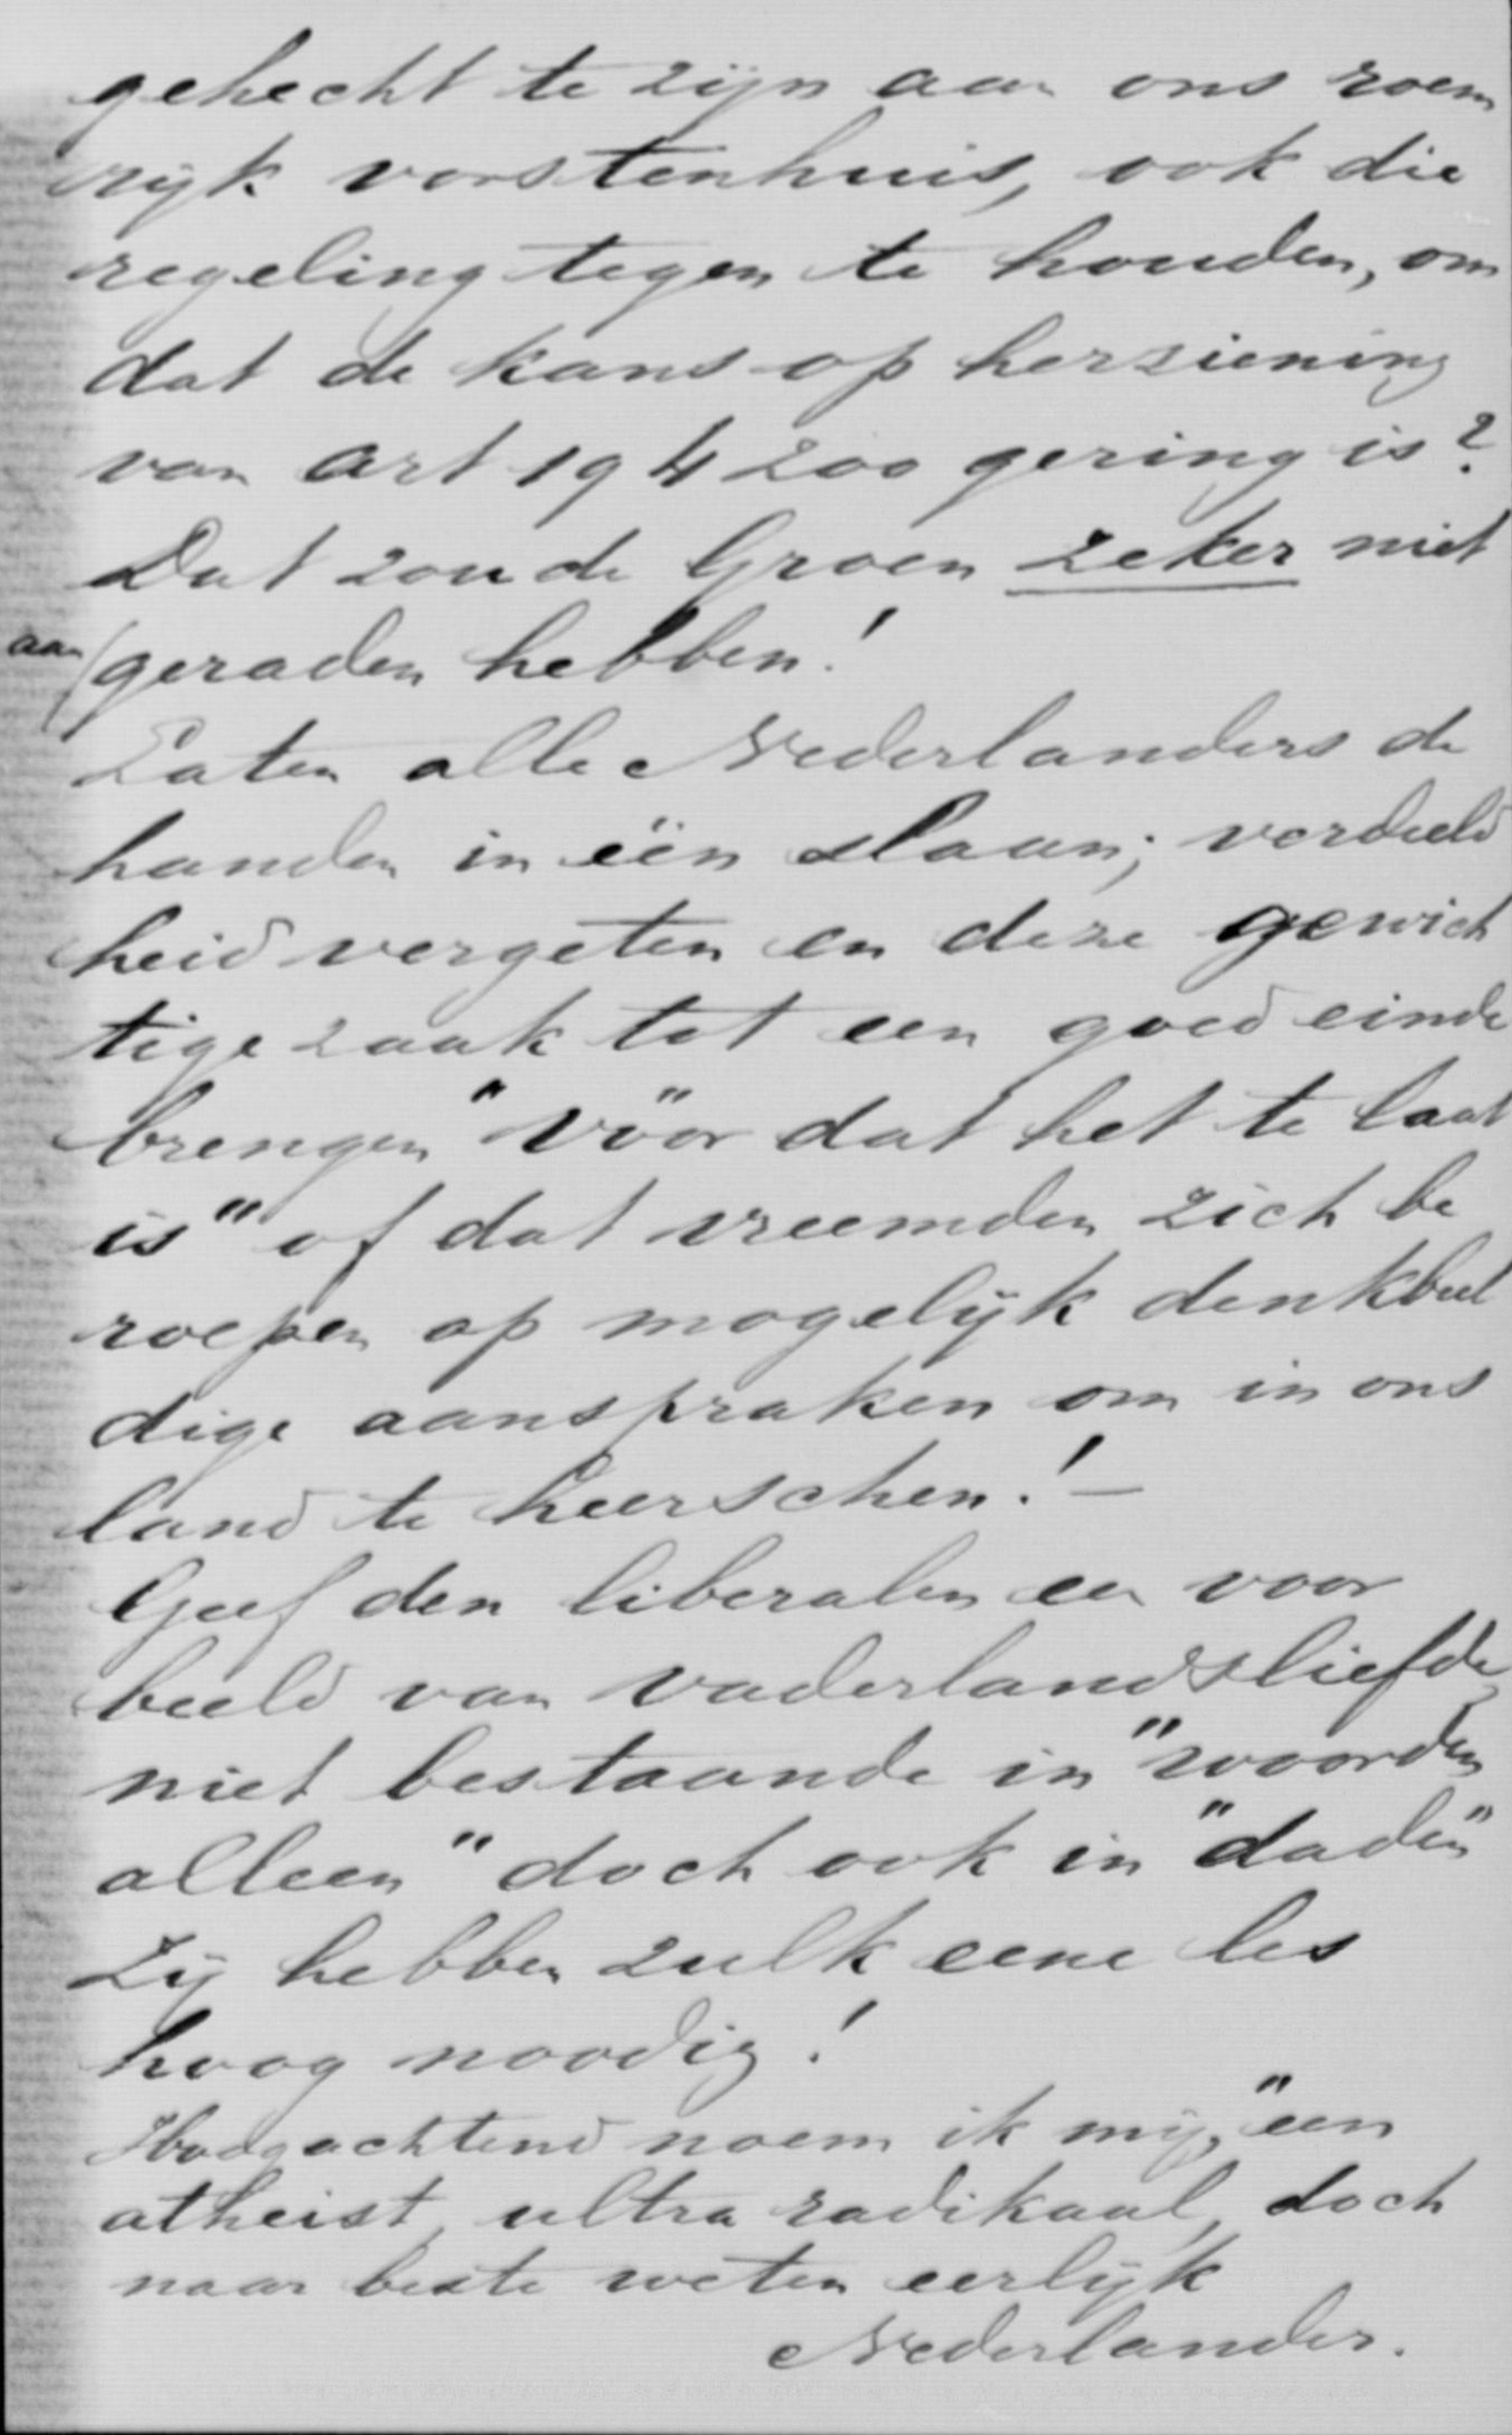 gehecht te zijn aan ons roem
rijk vorstenhuis, ook die
regeling tegen te houden, om
dat de kans op herziening
van art 194 zoo gering is?
Dat zoude Groen zeker niet
aan/geraden hebben!
Laten alle Nederlanders de
handen in één slaan; verdeeld
heid vergeten en deze gewich
tige zaak tot een goed einde
brengen "vóór dat het te laat
is" of dat vreemden zich be
roepen op mogelijk denkbeel
dige aanspraken om in ons
land te heerschen! —
Geef den liberalen een voor
beeld van vaderlandsliefde,
niet bestaande in "woorden
alleen" doch ook in "daden"
Zij hebben zulk eene les
hoog noodig!
Hoogachtend noem ik mij, "een
atheist, ultra radikaal, doch
naar beste weten eerlijk
Nederlander.